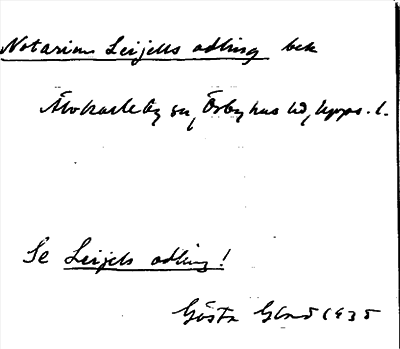 Notarius Leijells odling bek
Älvkarleby sn, Örbyhus hd, Upps. l.
Se Leijels odling!
Gösta 1935